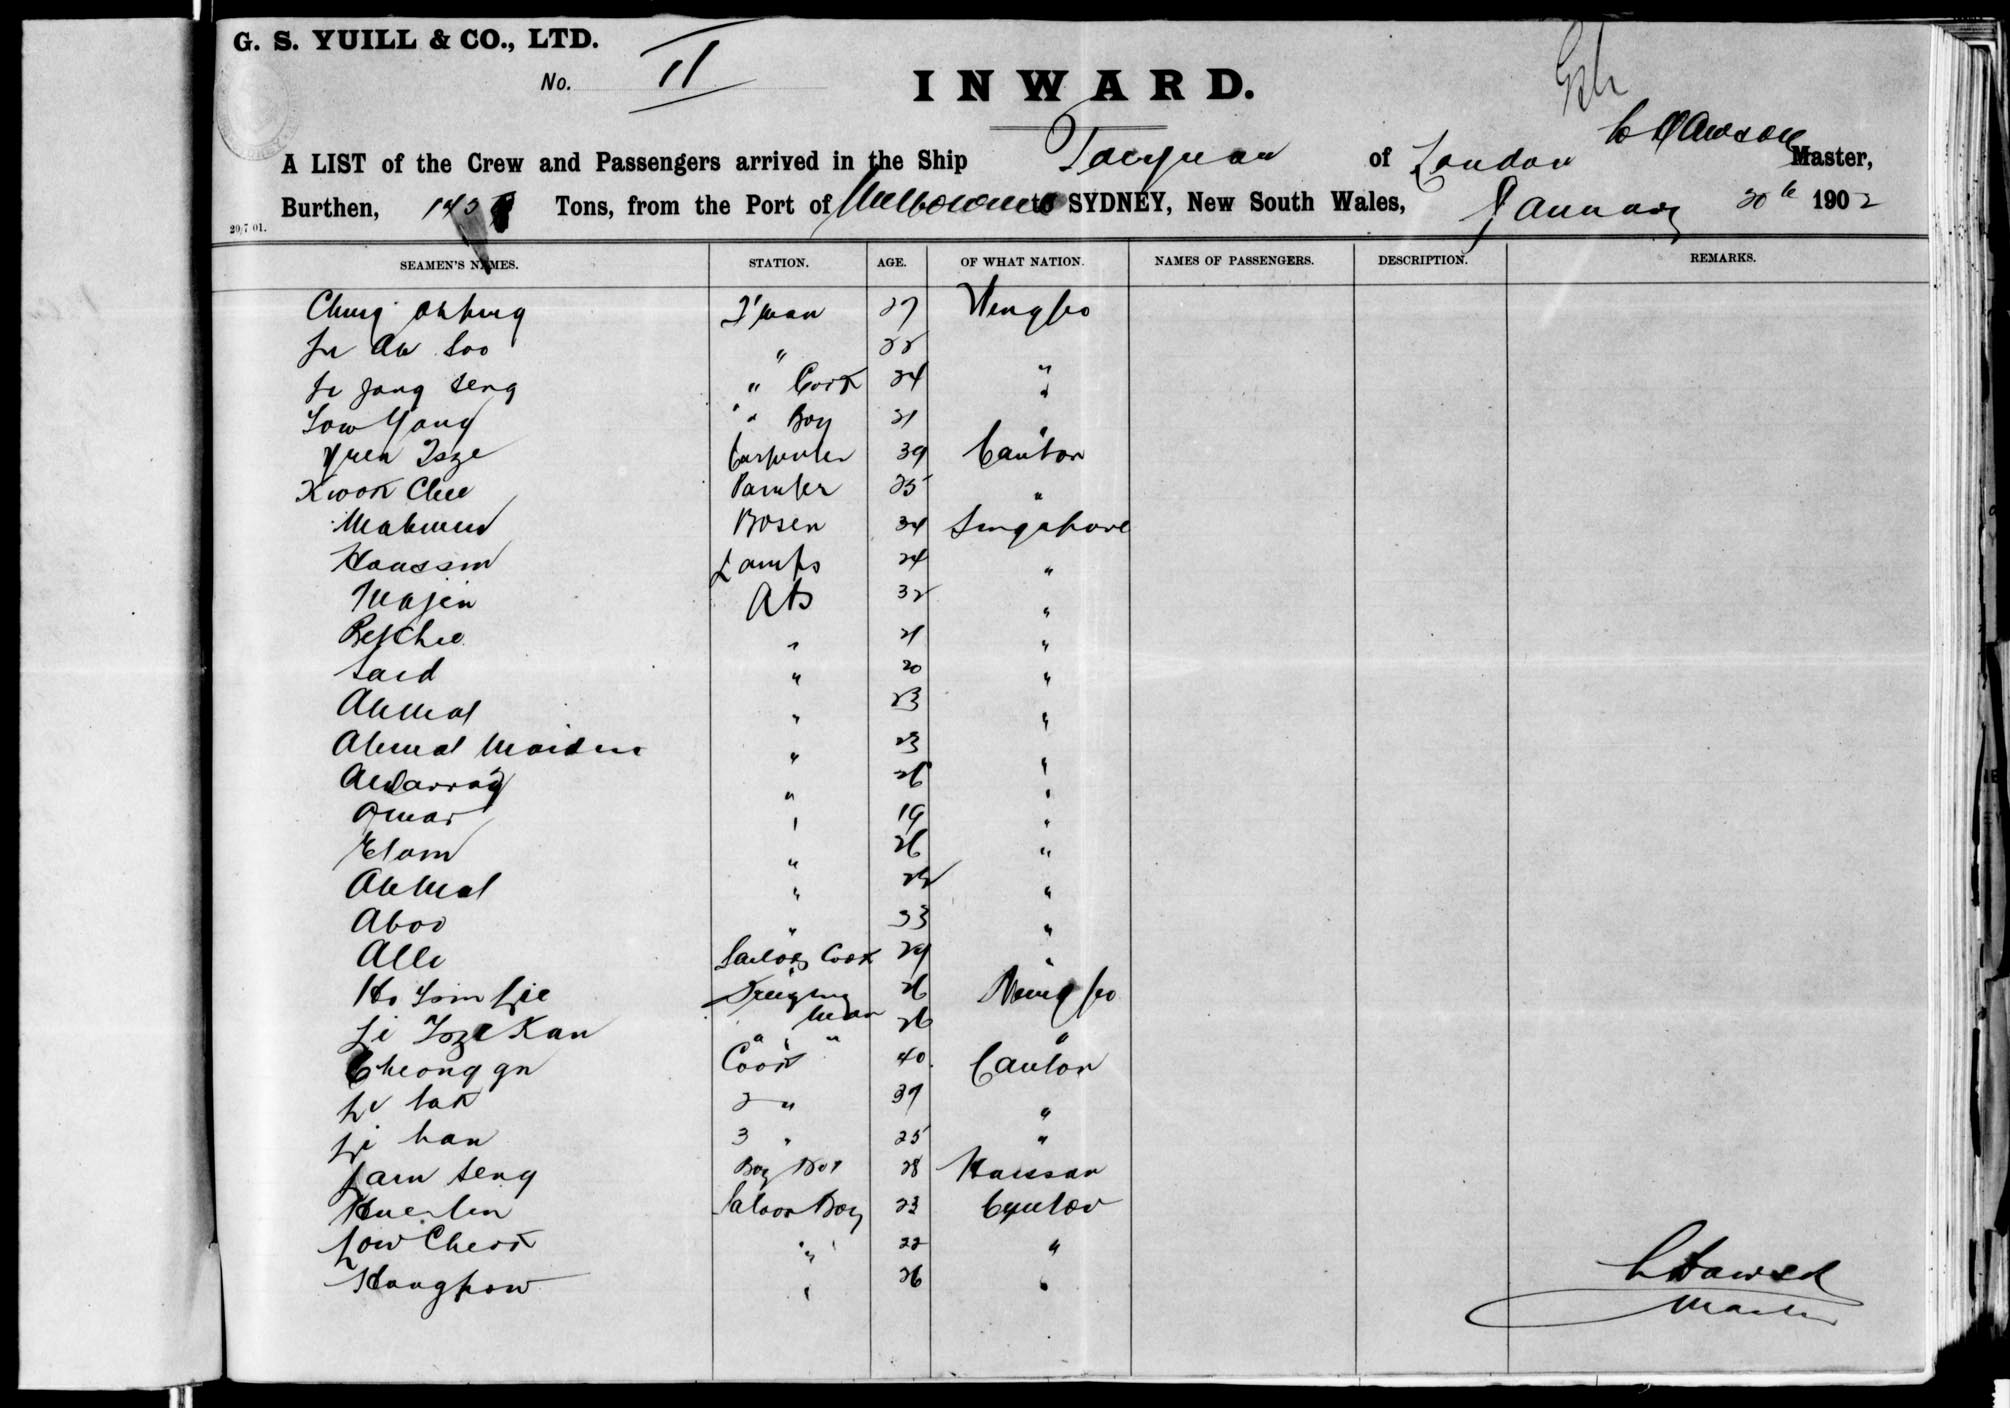 G. S. YUILL & CO., LTD.
No. II
INWARD.
A LIST of the Crew and Passengers arrived in the Ship Taiyuan of London C Dawson Master,
Burthen, Tons, from the Port of Melbourne to SYDNEY, New South Wales, January 30th 1902
20/7 01.
SEAMEN'S NAMES. STATION. AGE. OF WHAT NATION. NAMES OF PASSENGERS. DESCRIPTION. REMARKS.
Chung F'man 27 Ningpo
Le Ah Soo " 22
Le Jong Seng " Cook 24 "
Low Yong " " Boy 21 "
Yuen Tsze Carpenter 39 Canton
Kwok Chee Painter 25 "
Mahmud Bosen 34 Singapore
Haussin Lamps 24 "
Majin ABs 32 "
" 21 "
Said " 20 "
Ahmat " 23 "
Ahmat " 23 "
" 26 "
Omar " 19 "
Elam " 26 "
Ahmat " "
Aboo " 33 "
Alli Sailors Cook 29 "
Ho Tom Lie 26 Ningpo
man
Li Tsze Kan " " 26 "
Cheong Cook 40 Canton
Le Tak 2 " 39 "
Li han 3 " 25 "
Lam Seng 28
Saloon Boy 23 Canton
Low " 22 "
" 26 "
C Dawson
Master